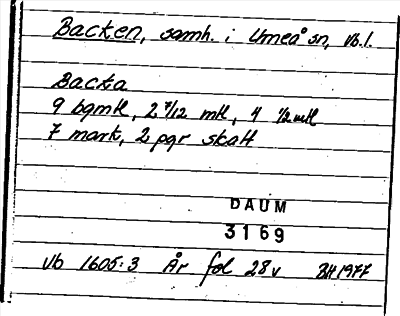 Backen, samh. i Umeå sn, Vb.l.
Backa
9 bgmtl, 2 7/12 mtl, 4 1/2 mtl
7 mark, 2 pgr skatt
DAUM
3169
Vb 1605:3 År fol 28v BH 1977